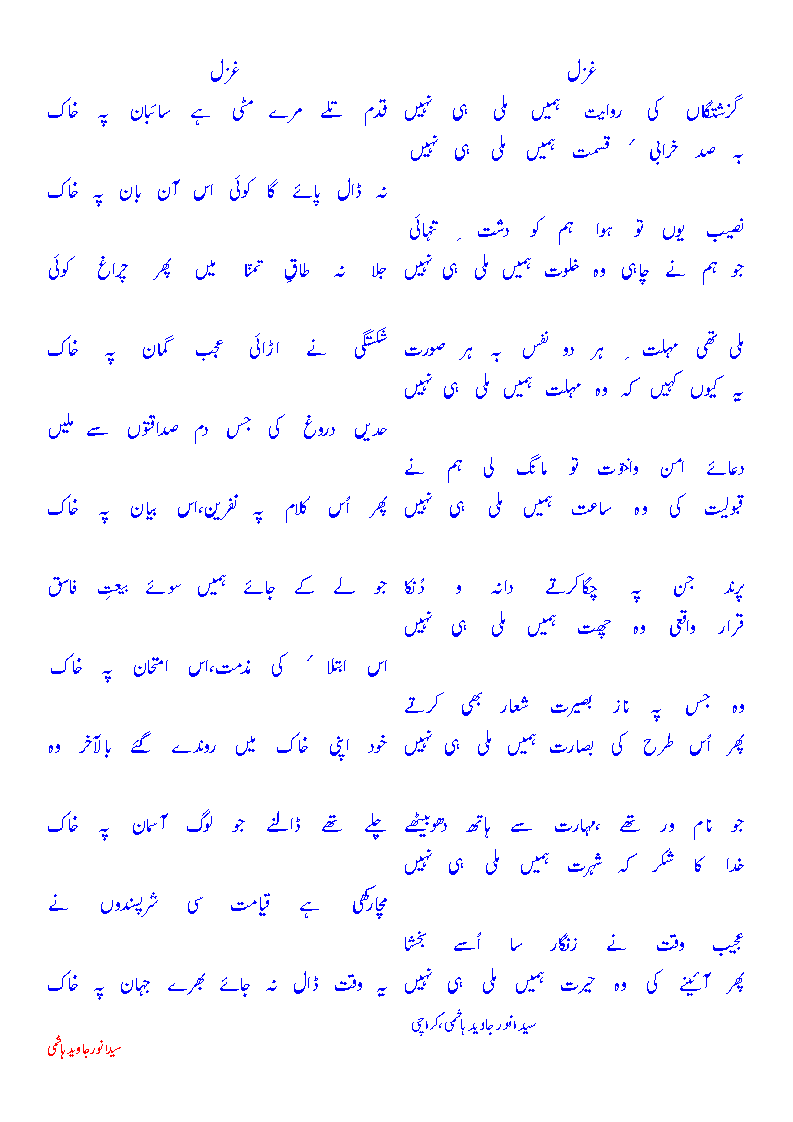 غزل
گزشتگاں کی روایت ہمیں ملی ہی نہیں
بہ صد خرابیٔ قسمت ہمیں ملی ہی نہیں
نصیب یوں تو ہوا ہم کو دشتِ تنہائی
جو ہم نے چاہی وہ خلوت ہمیں ملی ہی نہیں
ملی تھی مہلتِ ہر دو نفس بہ ہر صورت
یہ کیوں کہیں کہ وہ مہلت ہمیں ملی ہی نہیں
دعائے امن واخوّت تو مانگ لی ہم نے
قبولیت کی وہ ساعت ہمیں ملی ہی نہیں
پرند جن پہ چگاکرتے دانہ و دُنکا
قرار واقعی وہ چھت ہمیں ملی ہی نہیں
وہ جس پہ ناز بصیرت شعار بھی کرتے
پھر اُس طرح کی بصارت ہمیں ملی ہی نہیں
جو نام ور تھے ،مہارت سے ہاتھ دھوبیٹھے
خدا کا شکر کہ شہرت ہمیں ملی ہی نہیں
عجیب وقت نے زنگار سا اُسے بخشا
پھر آئینے کی وہ حیرت ہمیں ملی ہی نہیں
سیدانورجاویدہاشمی،کراچی
غزل
قدم تلے مرے مٹی ہے سائبان پہ خاک
نہ ڈال پائے گا کوئی اس آن بان پہ خاک
جلا نہ طاقِ تمنّا میں پھر چراغ کوئی
شکستگی نے اڑائی عجب گمان پہ خاک
حدیں دروغ کی جس دم صداقتوں سے ملیں
پھر اُس کلام پہ نفرین،اس بیان پہ خاک
جو لے کے جائے ہمیں سوئے بیعتِ فاسق
اس ابتلاٴ کی مذمت،اس امتحان پہ خاک
خود اپنی خاک میں روندے گئے بالآخر وہ
چلے تھے ڈالنے جو لوگ آسمان پہ خاک
مچارکھی ہے قیامت سی شرپسندوں نے
یہ وقت ڈال نہ جائے بھرے جہان پہ خاک
سیدانورجاویدہاشمی